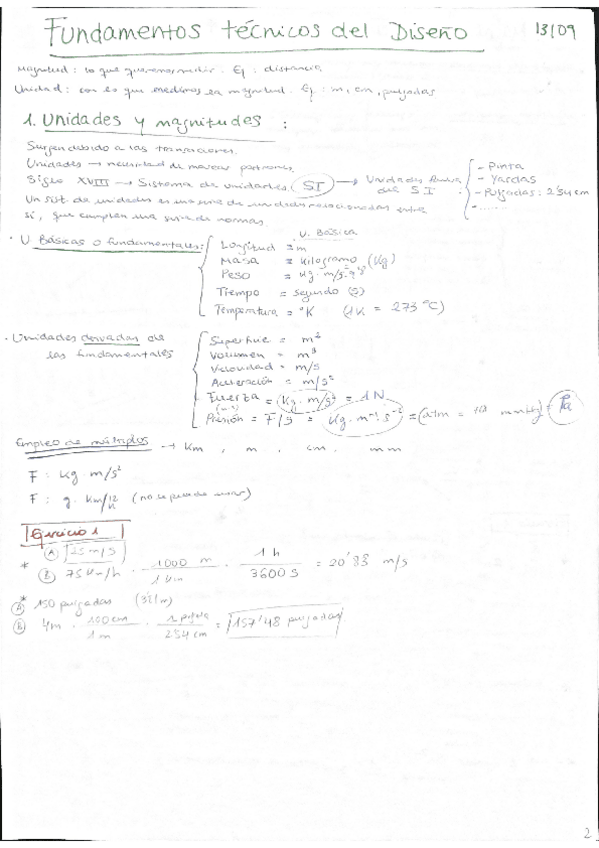 Fundamentos técnicos del Diseño 13/09
Magnitud: lo que queremos medir. Ej: distancia
Unidad: con lo que medimos esa magnitud. Ej: m, cm, pulgadas
1. Unidades y magnitudes :
Surgen debido a las transacciones.
Unidades → necesidad de marcar patrones.
Siglo XVIII → Sistema de unidades. SI → Unidades fuera del S.I.
- Pinta
- Yardas
- Pulgadas: 2'54 cm
- ......
Un sist. de unidades es una serie de unidades relacionadas entre
sí, que cumplen una serie de normas.
· U. Básicas o fundamentales:
U. Básica
Longitud = m
Masa = kilogramo (kg)
Peso = kg · m/s²
Tiempo = segundo (s)
Temperatura = °K (1K = 273 °C)
· Unidades derivadas de
las fundamentales
Superficie = m²
Volumen = m³
Velocidad = m/s
Aceleración = m/s²
Fuerza = (kg · m/s²) = 1N
Presión = F/S = kg · m⁻¹ s⁻² = (atm = mmHg) Pa
Empleo de múltiplos → Km , m , cm , mm
F : kg · m/s²
F : g · km/h² (no se puede)
Ejercicio 1
* A 25 m/s
B 75 km/h · 1000 m / 1 km · 1 h / 3600 s = 20'83 m/s
* A 150 pulgadas (3'81m)
B 4m · 100cm / 1m · 1 pulg / 2'54 cm = 157'48 pulgadas
2